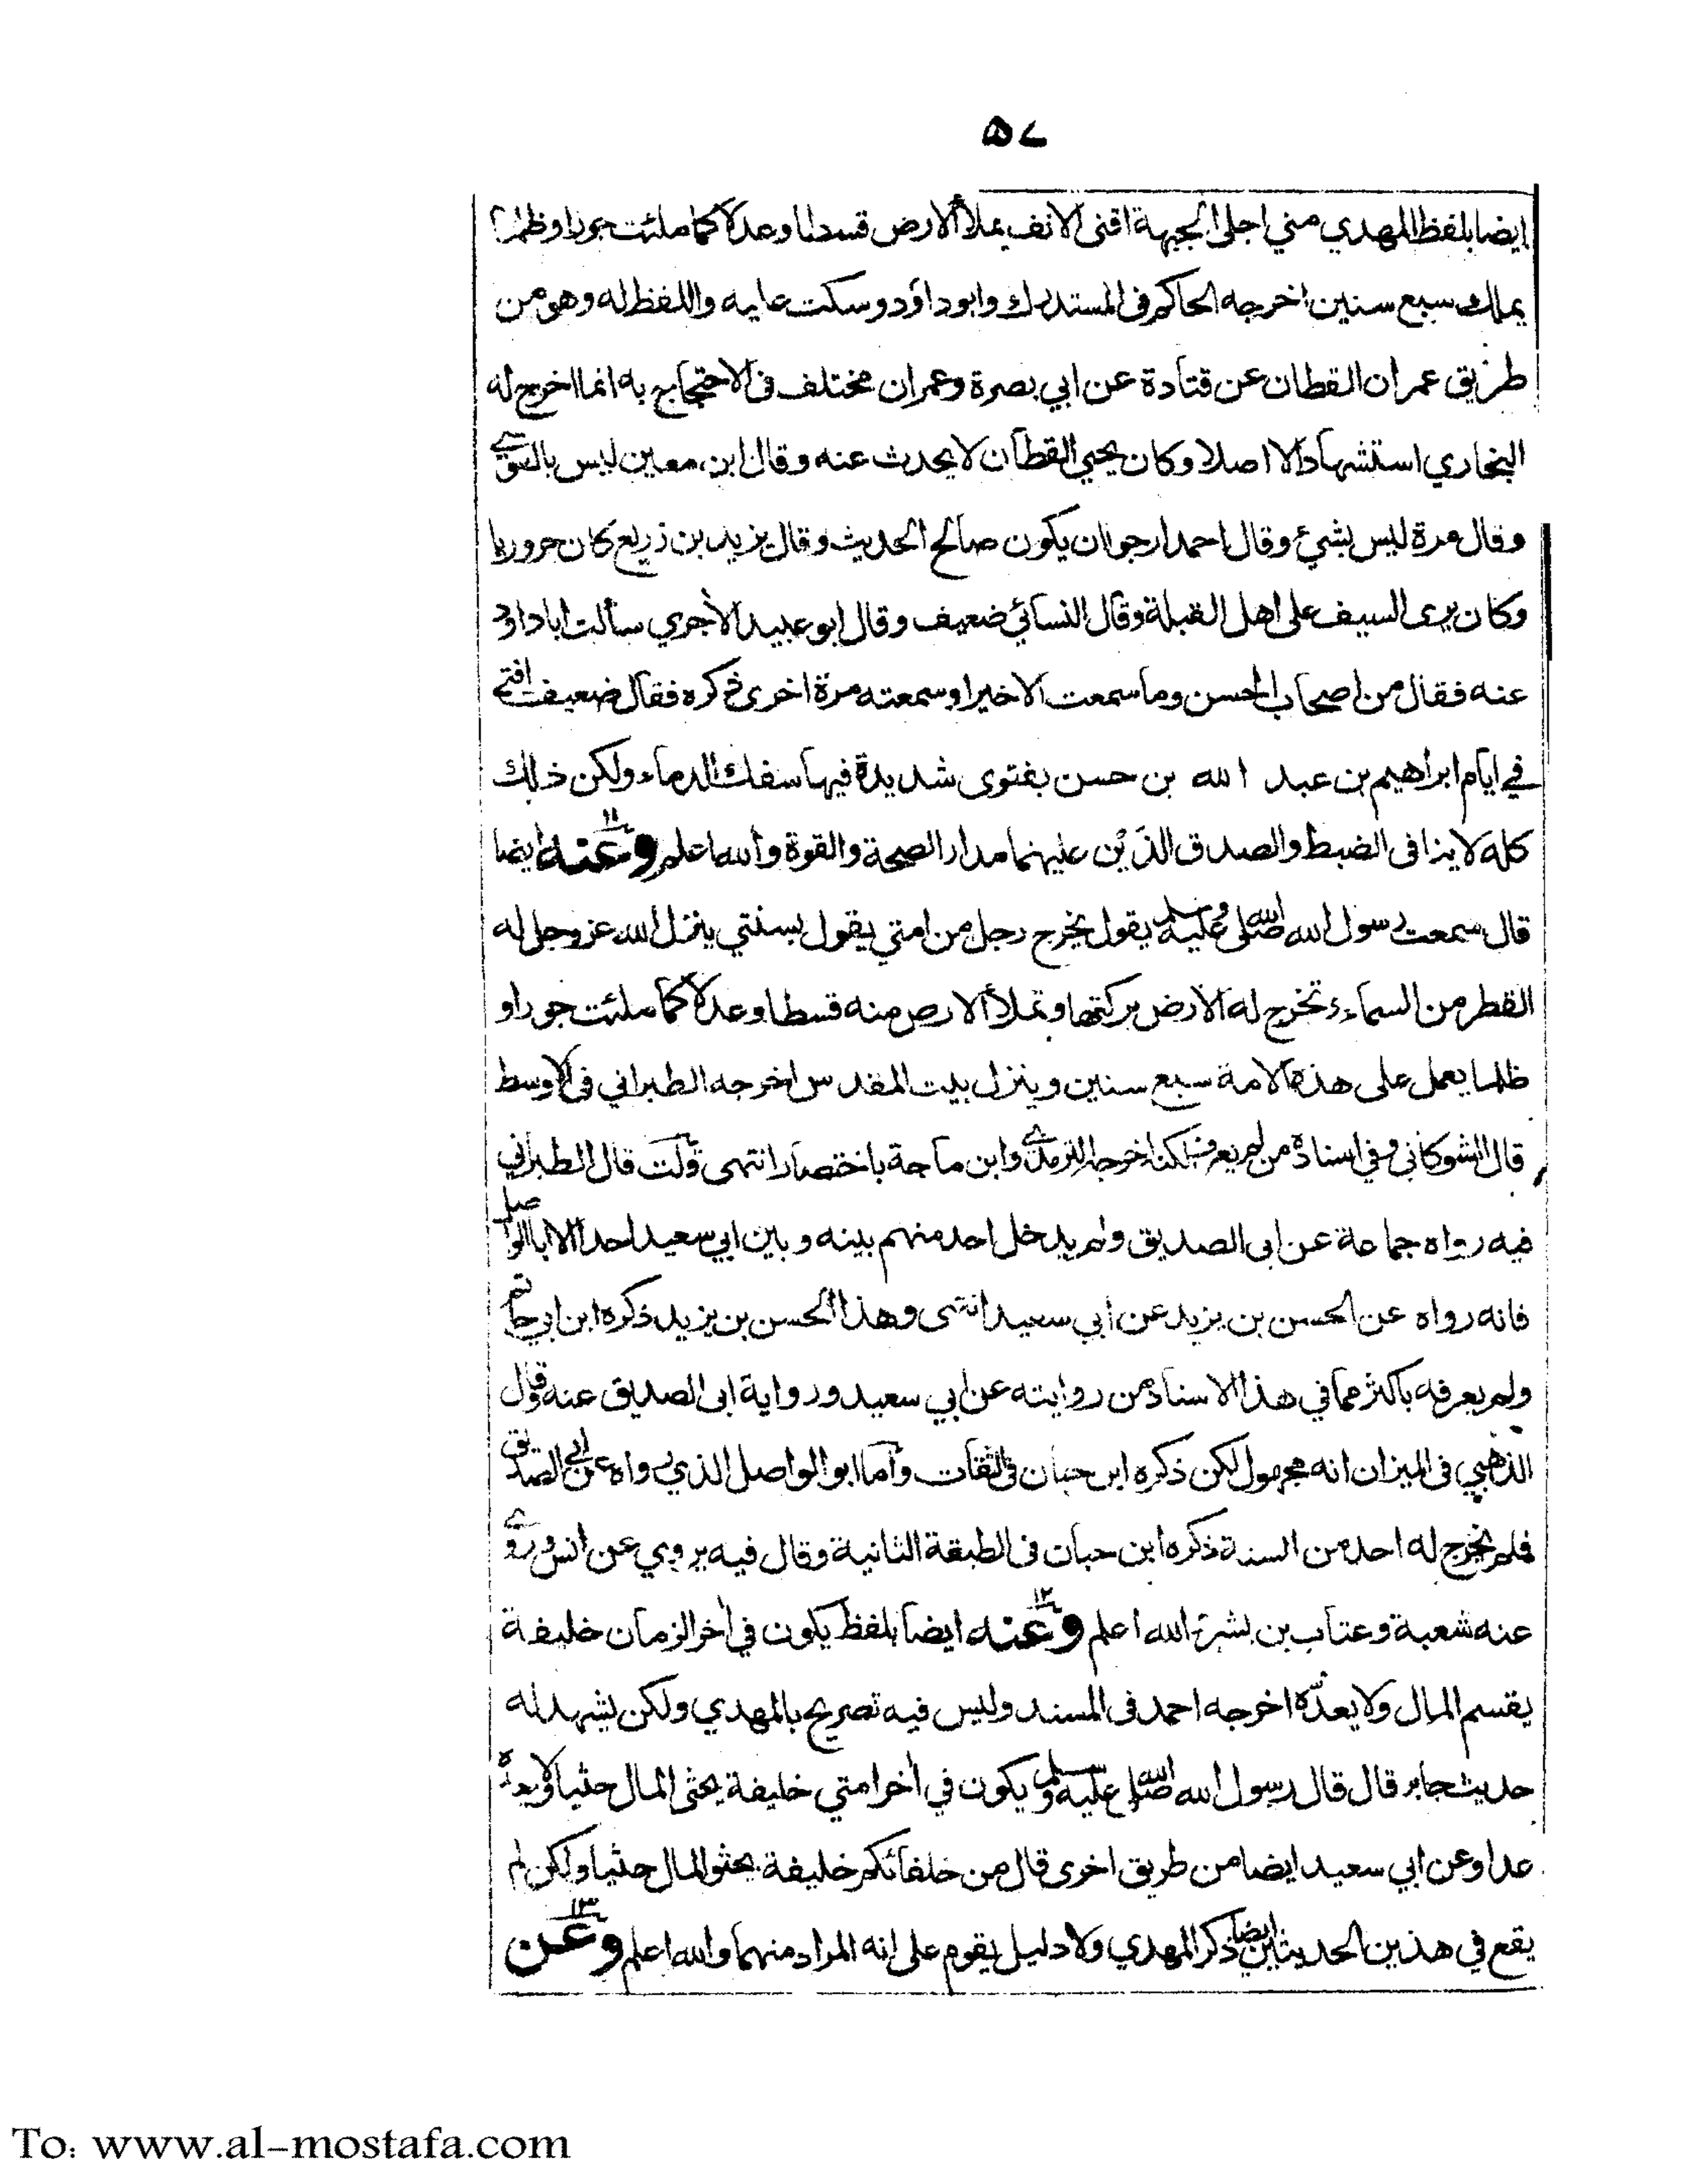 ۵۷
ايضا بلفظ المهدي مني اجلى الجبهة اقنى الانف يملأ الارض قسطا وعدلا كما ملئت جورا وظلما
يملك سبع سنين اخرجه الحاكم فى المستدرك وابوداؤد وسكت عليه واللفظ له وهو من
طريق عمران القطان عن قتادة عن ابي بصرة وعمران مختلف فى الاحتجاج به انما اخرج له
البخاري استشهادا لا اصلا وكان يحيى القطان لا يحدث عنه وقال ابن معين ليس بالقوے
وقال مرة ليس بشئ وقال احمد ارجوا ان يكون صالح الحديث وقال يزيد بن زريع كان حروريا
وكان يرى السيف على اهل القبلة وقال النسائي ضعيف وقال ابو عبيد الأجري سألت اباداود
عنه فقال من اصحاب الحسن وما سمعت الا خيرا وسمعته مرة اخرى ذكره فقال ضعيف افتى
في ايام ابراهيم بن عبد الله بن حسن بفتوى شديدة فيها سفك الدماء ولكن ذلك
كله لا ينافى الضبط والصدق الذَين عليهما مدار الصحة والقوة والله اعلم وعنه ۱۱ ايضا
قال سمعت رسول الله صلى الله عليه وسلم يقول يخرج رجل من امتي يقول بسنتي ينزل الله عز وجل له
القطر من السماء وتخرج له الارض بركتها وتملأ الارض منه قسطا وعدلا كما ملئت جورا و
ظلما يعمل على هذه الامة سبع سنين وينزل بيت المقدس اخرجه الطبراني فى الاوسط
قال الشوكاني وفي اسناده من لم يعرف لكنه اخرجه الترمذے وابن ماجة باختصار انتهى قولت قال الطبراني
فيه رواه جماعة عن ابى الصديق ولم يدخل احد منهم بينه وبين ابي سعيد احدا الا ابا الواصل
فانه رواه عن الحسن بن يزيد عن ابي سعيد انتهى وهذا الحسن بن يزيد ذكره ابن ابي حاتم
ولم يعرفه باكثر مما في هذا الاسناد من روايته عن ابي سعيد ورواية ابى الصديق عنه وقال
الذهبي فى الميزان انه مجهول لكن ذكره ابن حبان فى الثقات وأما ابو الواصل الذي رواه عن ابي الصديق
فلم يخرج له احد من الستة ذكره ابن حبان فى الطبقة الثانية وقال فيه يروي عن انس وروے
عنه شعبة وعتاب بن بشر والله اعلم وعنه ۱۲ ايضا بلفظ يكون في أخر الزمان خليفة
يقسم المال ولا يعدّه اخرجه احمد فى المسند وليس فيه تصريح بالمهدي ولكن يشهد له
حديث جابر قال قال رسول الله صلى الله عليه وسلم يكون في أخر امتي خليفة يحثى المال حثيا ولا يعده
عدا وعن ابي سعيد ايضا من طريق اخرى قال من خلفائكم خليفة يحثو المال حثيا ولكن لم
يقع في هذين الحديثين ايضا ذكر المهدي ولا دليل يقوم على انه المراد منهما والله اعلم وعن ۱۳
To: www.al-mostafa.com